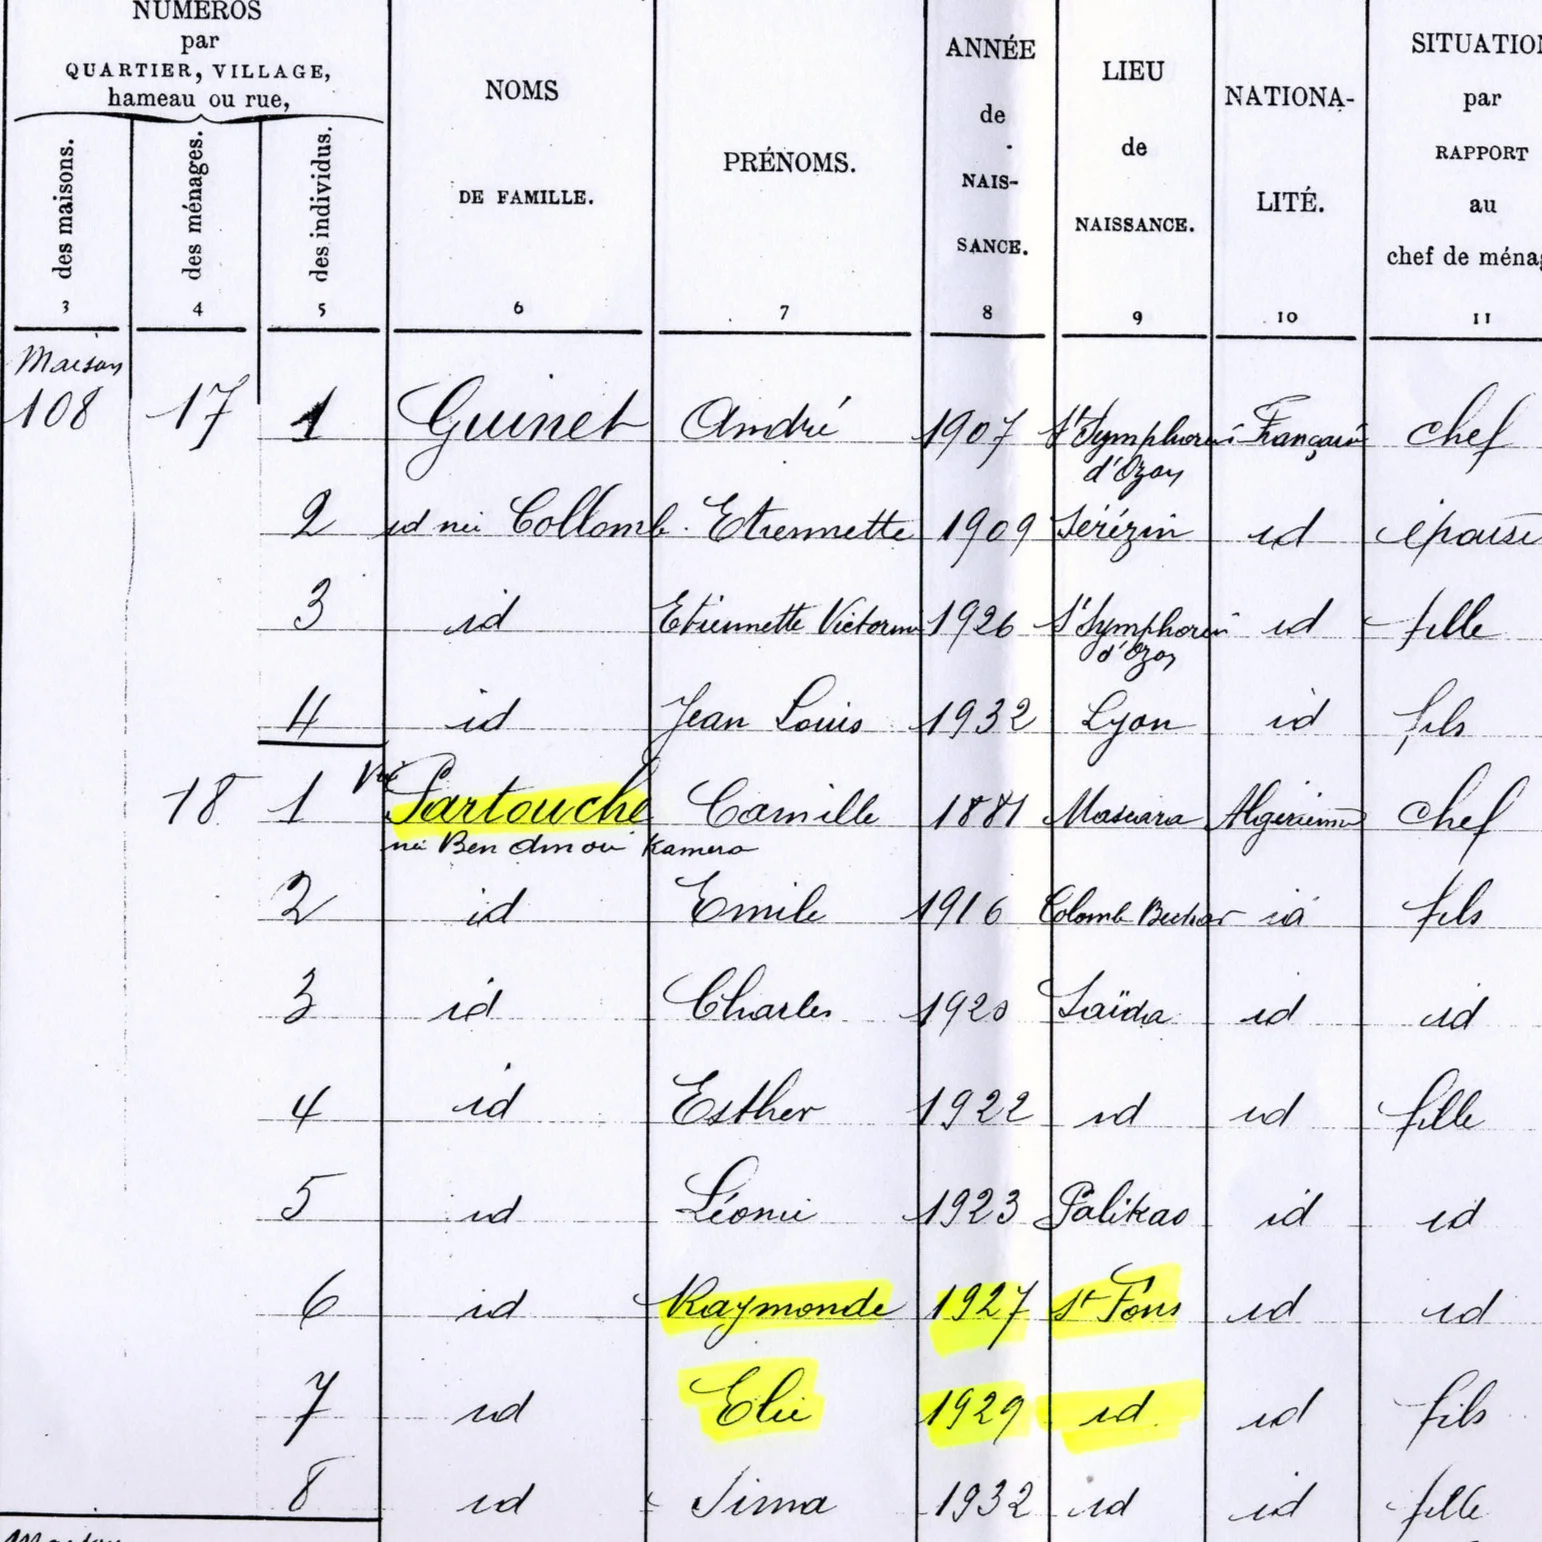 NUMÉROS
par
QUARTIER, VILLAGE,
hameau ou rue,
des maisons.
des ménages.
des individus.
NOMS
DE FAMILLE.
PRÉNOMS.
ANNÉE
de
NAIS-
SANCE.
LIEU
de
NAISSANCE.
NATIONA-
LITÉ.
SITUATION
par
RAPPORT
au
chef de ména
3 4 5 6 7 8 9 10 11
Maison
108 17 1 Guinet André 1907 St Symphorien Française chef
d'Ozon
2 id née Collomb Etiennette 1909 Sérézin id épouse
3 id Etiennette Victorine 1926 St Symphorien id fille
d'Ozon
4 id Jean Louis 1932 Lyon id fils
18 1 Vve Partouche Camille 1881 Mascara Algérienne chef
née Ben Kamera
2 id Emile 1916 Colomb Bechar id fils
3 id Charles 1920 Saïda id id
4 id Esther 1922 id id fille
5 id Léonie 1923 Palikao id id
6 id Raymonde 1927 St Fons id id
7 id Elie 1929 id id fils
8 id Sima 1932 id id fille
Maison